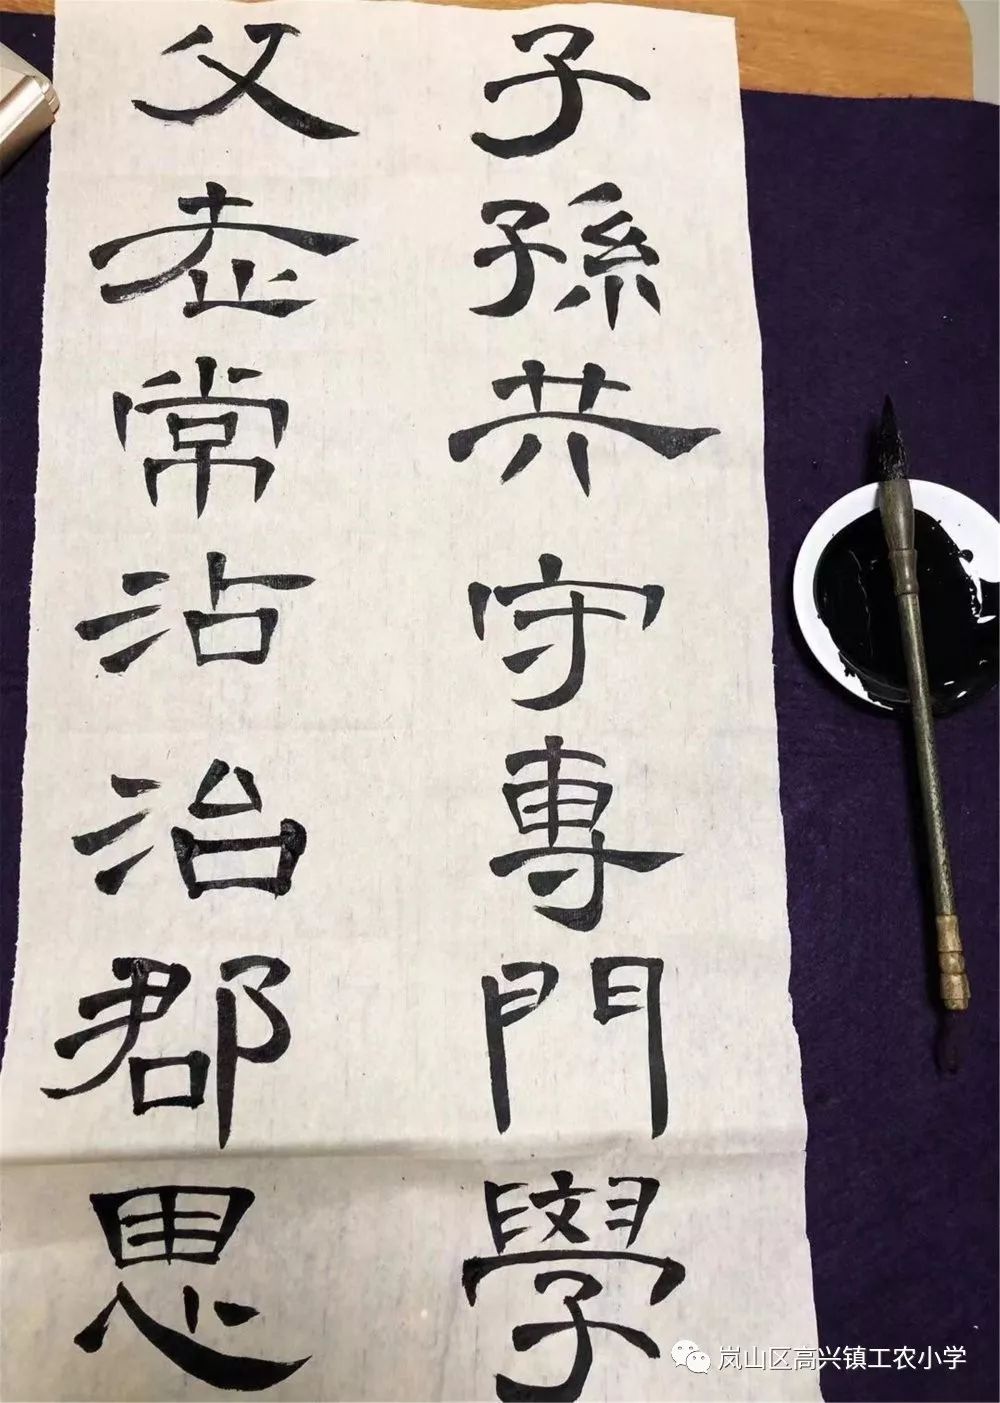 子孫共守專門學
父老常沾治郡恩
岚山区高兴镇工农小学